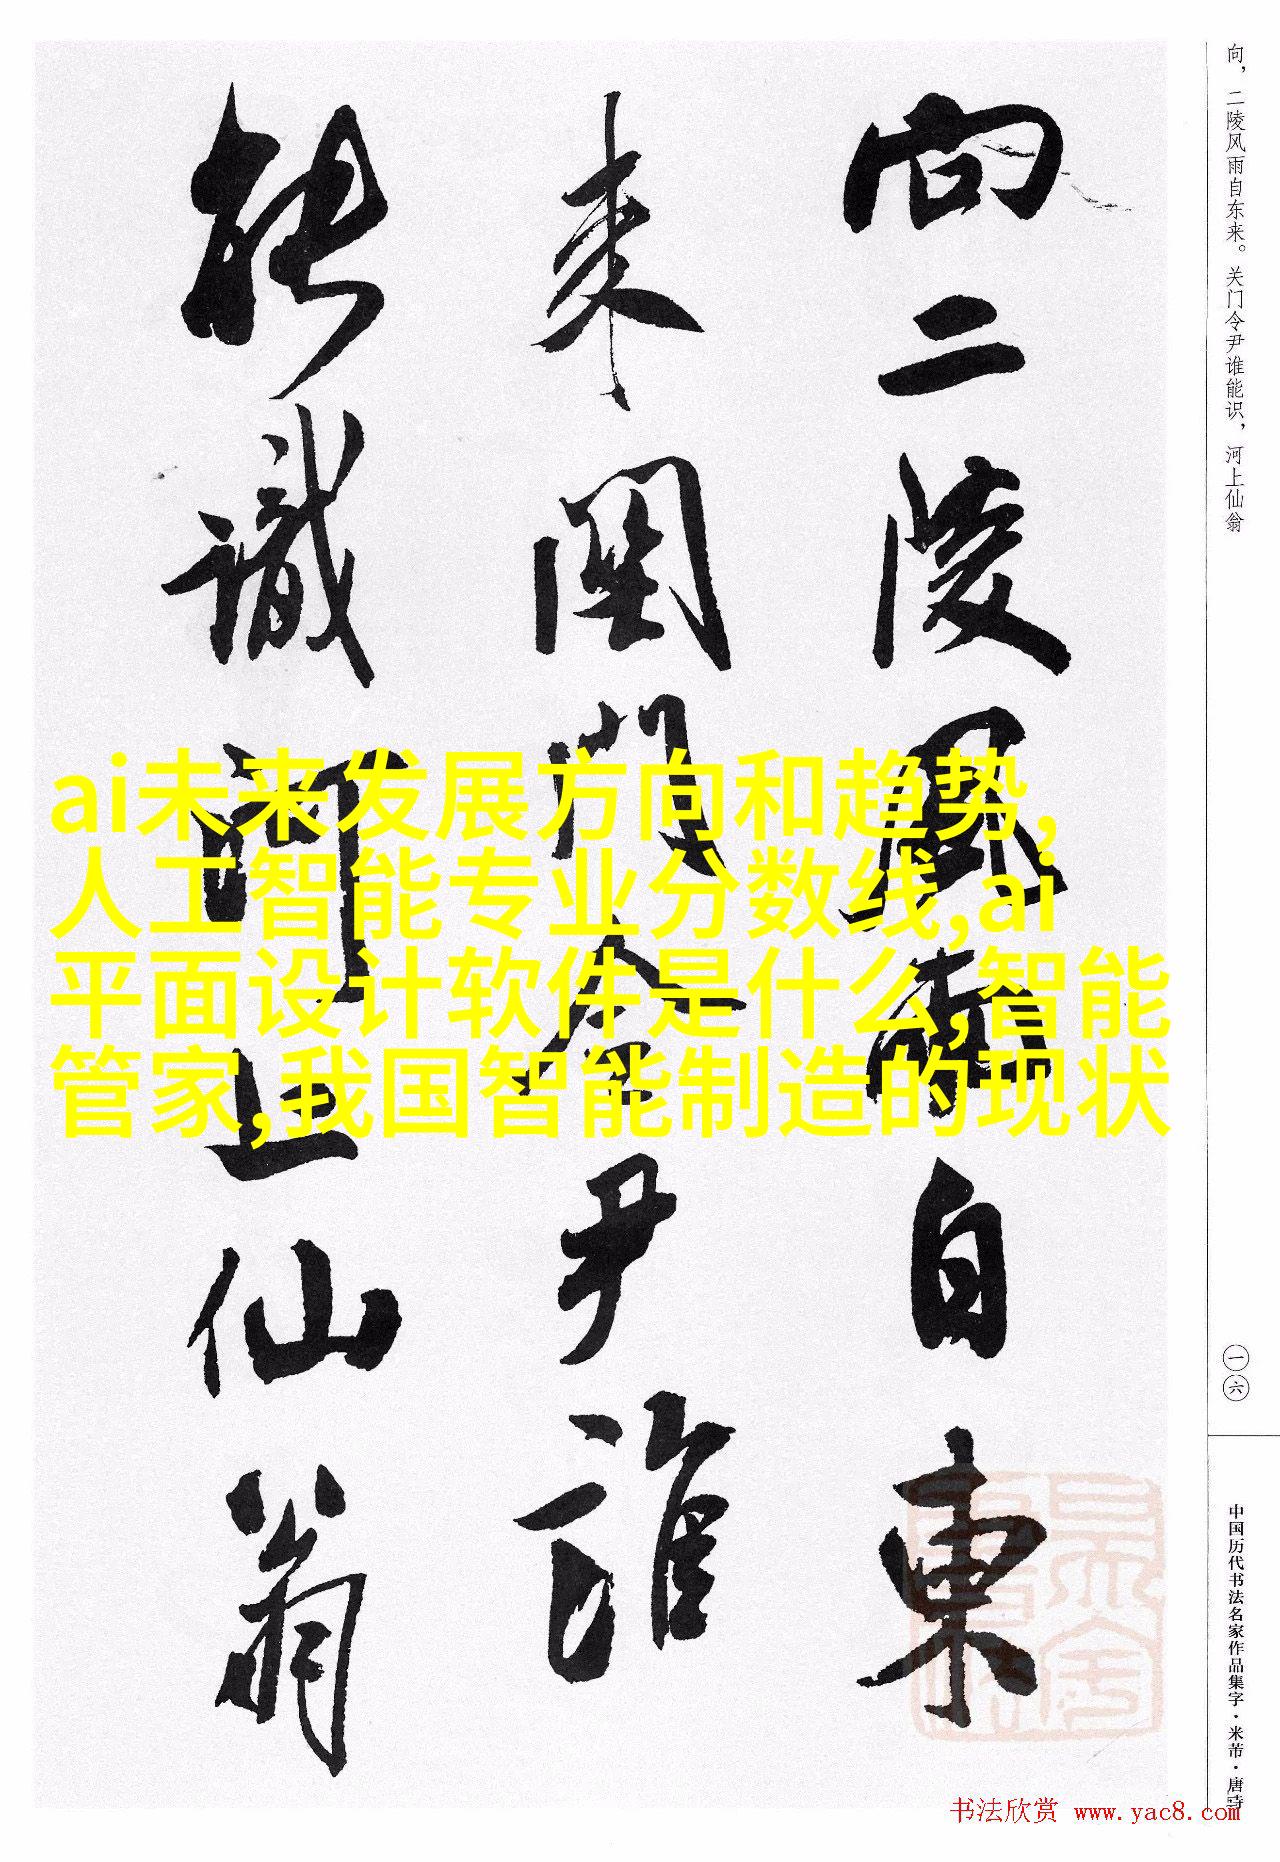 向，二陵风雨自东来。关门令尹谁能识，河上仙翁
向二陵風雨自東
来関門令尹誰
能識河上仙翁
ai未来发展方向和趋势,
人工智能专业分数线,ai
平面设计软件是什么,智能
管家,我国智能制造的现状
一六
中国历代书法名家作品集字·米芾·唐诗
书法欣赏 www.yac8.com